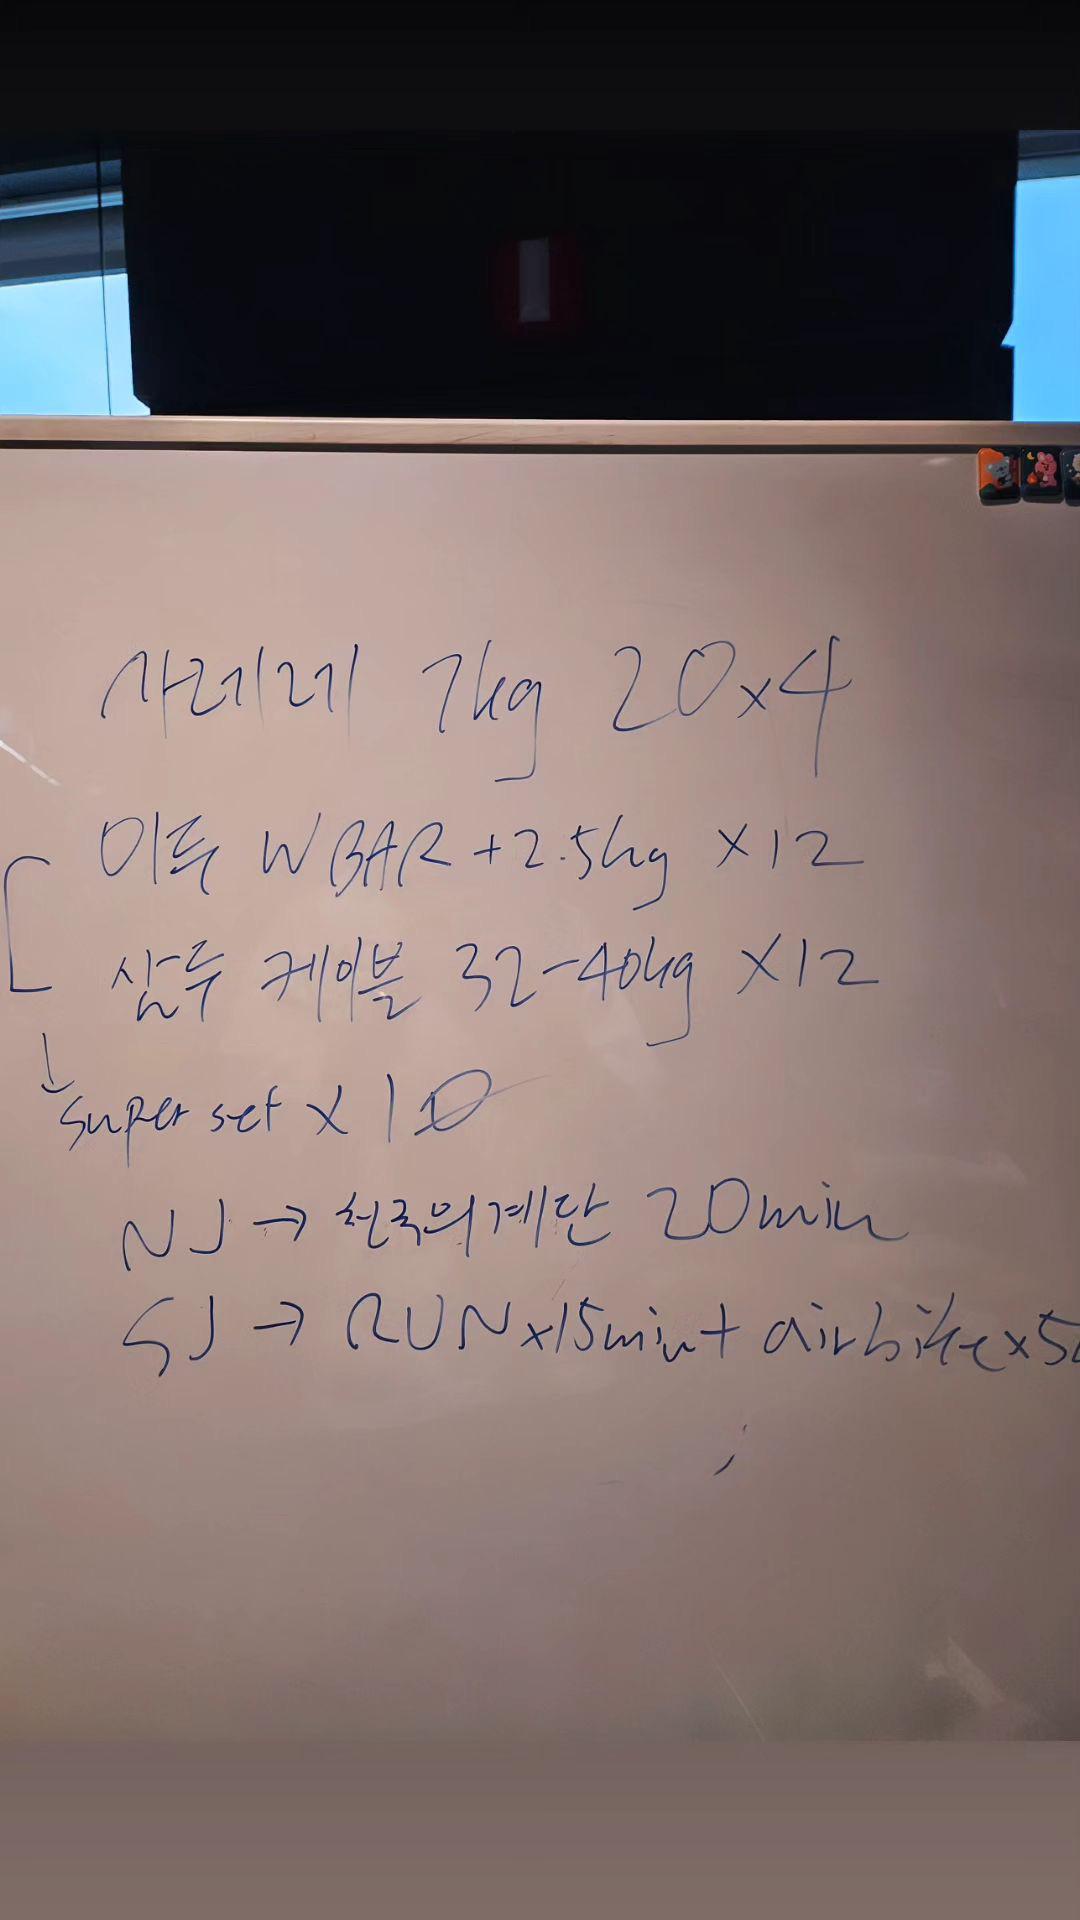 사레레 7kg 20x4
이두 WBAR+2.5kg x12
삼두 케이블 32-40kg x12
super set x 10
NJ → 천국의계단 20min
SJ → RUNx15min+ airbikex5